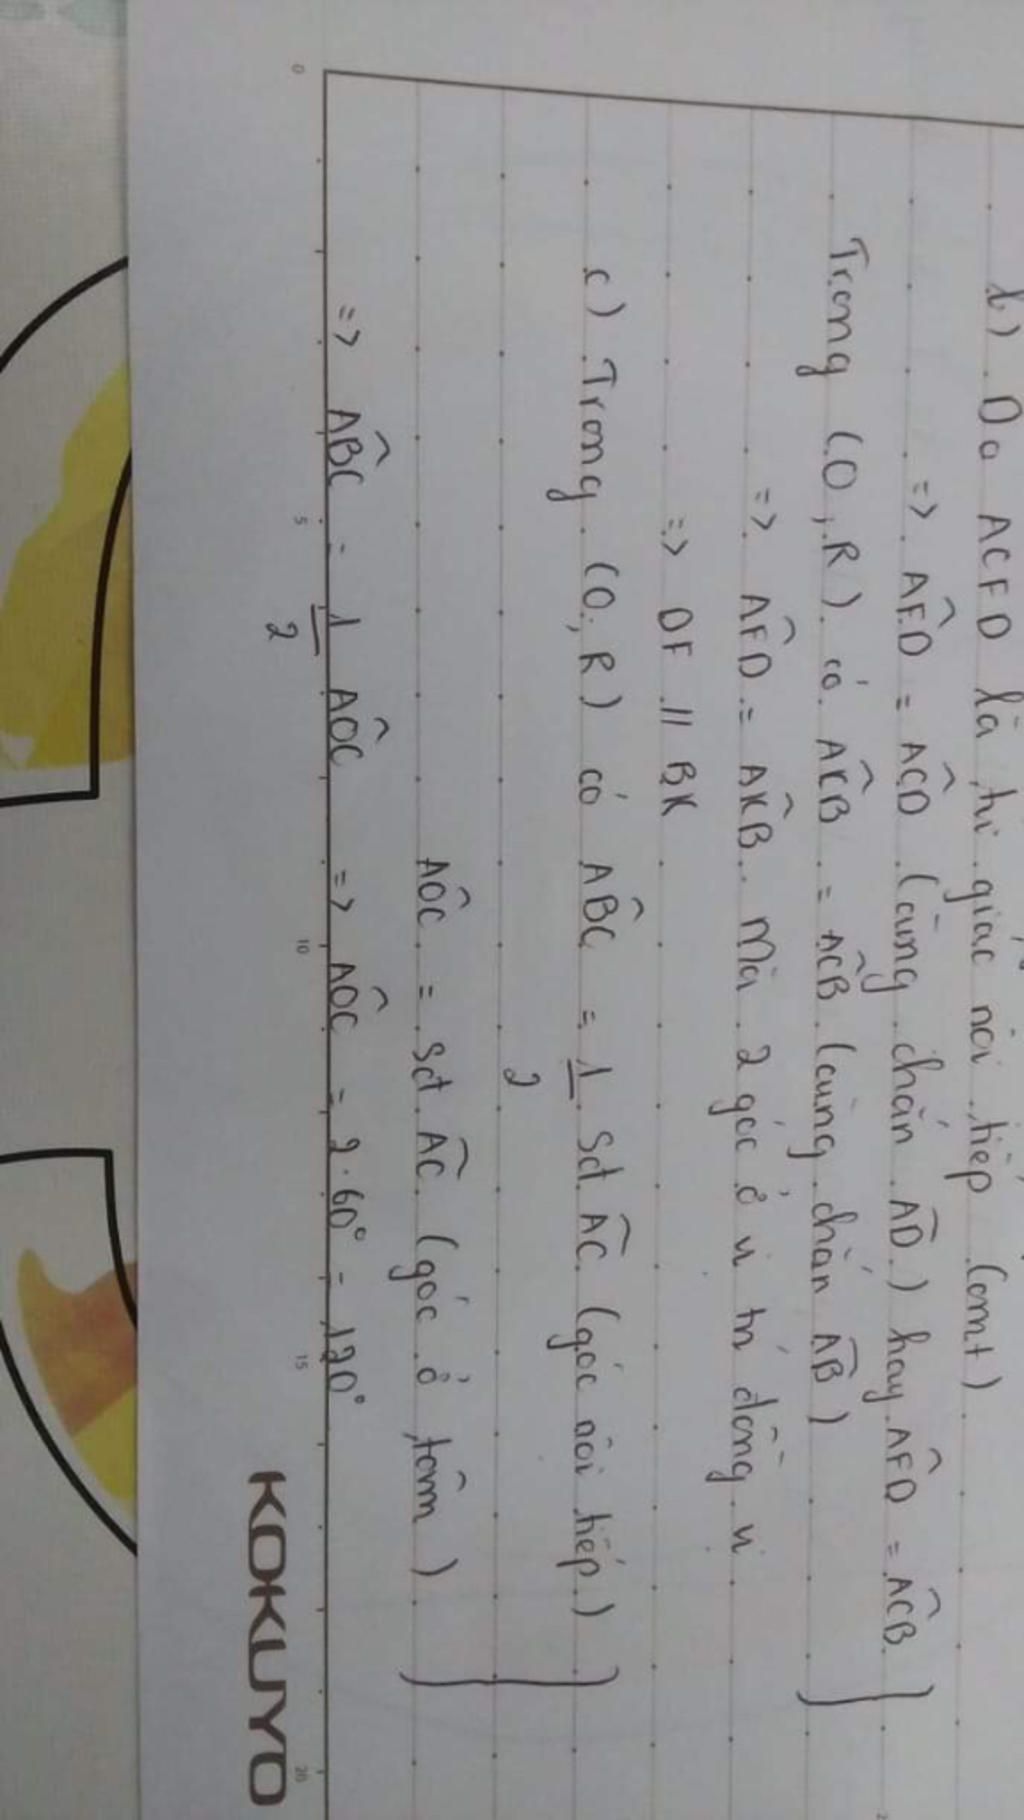 b) Do ACFD là tứ giác nội tiếp (cmt)
=> AF̂D = AĈD (cùng chắn A͡D) hay AF̂D = AĈB
Trong (O; R) có AK̂B = AĈB (cùng chắn A͡B)
=> AF̂D = AK̂B. Mà 2 góc ở vị trí đồng vị
=> DF // BK
c) Trong (O; R) có AB̂C = 1/2 Sđ A͡C (góc nội tiếp)
AÔC = Sđ A͡C (góc ở tâm)
=> AB̂C = 1/2 AÔC => AÔC = 2.60° = 120°
0 5 10 15 20
KOKUYO